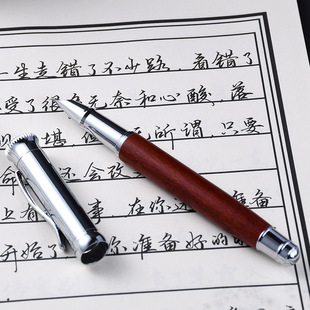 一生走错了不少路，看错了
受了很多无奈和心酸，落
狈 堪，但 无所谓，只要
命 还会改
上有 事，在你还 准备
开始了 你准备好的